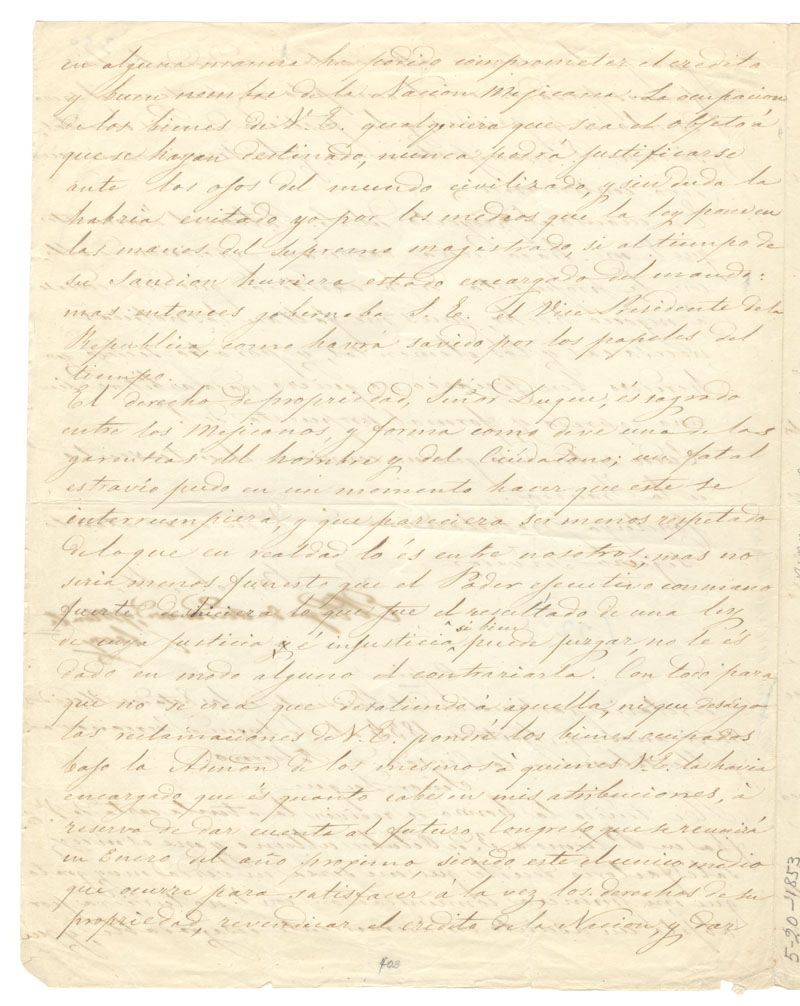 en alguna manera ha podido comprometer el credito
y buen nombre de la Nacion Mejicana. La ocupacion
de los bienes de V. E. qualquiera que sea el objeto á
que se hayan destinado, nunca podrá justificarse
ante los ojos del mundo civilizado, y sin duda la
habria evitado yo por los medios que la ley pone en
las manos del supremo magistrado, si al tiempo de
su sancion huviera estado encargado del mando:
mas entonces gobernaba S. E. el Vice Presidente de la
Republica, como havrá savido por los papeles del
tiempo.
El derecho de propriedad, Señor Duque, és sagrado
entre los Mejicanos, y forma como dive una de las
garantias del hombre y del Ciudadano; un fatal
estravío pudo en un momento hacer que este se
interrumpiera, y que pareciera ser menos respetado
de lo que en realdad lo és entre nosotros; mas no
seria menos funesto que el Poder ejecutivo con mano
fuerte deshiciera lo que fue el resultado de una ley
de cuya justicia é injusticia si bien puede juzgar, no le és
dado en modo alguno el contrariarla. Con todo para
que no se crea que desatiendo á aquella, ni que desoigo
las reclamaciones de V. E. pondré los bienes ocupados
bajo la Admon de los mismos à quienes V. E. la havia
encargado que és quanto cabe en mis atribuciones, à
reserva de dar cuenta al futuro Congreso que se reunirá
en Enero del año proximo, siendo este el unico medio
que ocurre para satisfacer á la vez los derechos de su
propriedad, revendicar el credito de la Nacion, y dar
403
5-20-1853